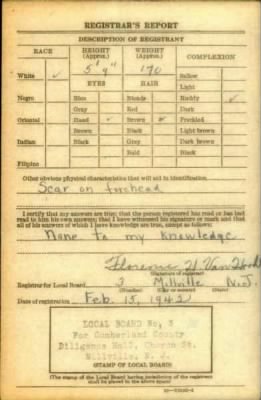 REGISTRAR'S REPORT
DESCRIPTION OF REGISTRANT
RACE HEIGHT (Approx.) WEIGHT (Approx.) COMPLEXION
5' 9" 170
White ✓ EYES HAIR Sallow
Light
Negro Blue Blonde Ruddy ✓
Gray Red Dark
Oriental Hazel ✓ Brown ✓ Freckled
Brown Black Light brown
Indian Black Gray Dark brown
Bald Black
Filipino
Other obvious physical characteristics that will aid in identification
Scar on forhead
I certify that my answers are true; that the person registered has read or has had
read to him his own answers; that I have witnessed his signature or mark and that
all of his answers of which I have knowledge are true, except as follows:
None to my Knowledge
Florence H.
(Signature of registrar)
Registrar for Local Board 3 Millville N.J
(Number) (City or county) (State)
Date of registration Feb. 15, 1942
LOCAL BOARD No. 3
For Cumberland County
Diligence Hall, St.
Millville, N. J.
(STAMP OF LOCAL BOARD)
(The stamp of the Local Board having jurisdiction of the registrant
shall be placed in the above space)